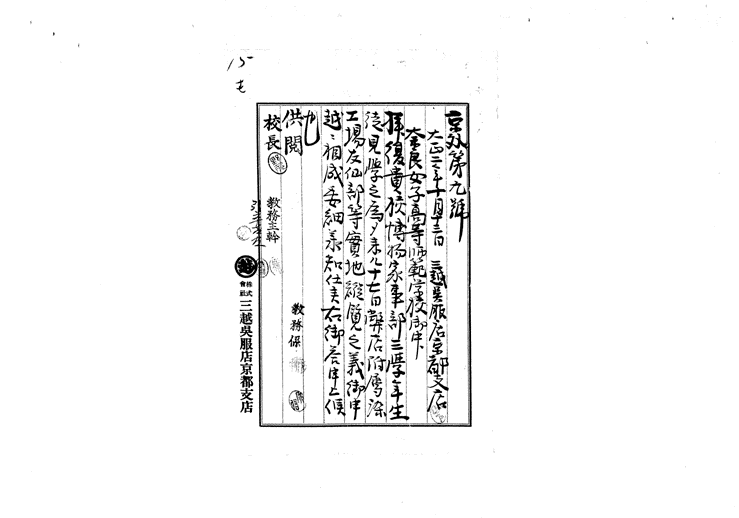 15
京外第九號
大正三年十月十三日 三越呉服店京都支店
奈良女子高等師範学校御中
拝復貴校博物家事部三学年生
徒見学之為メ来ル十七日弊店附属染
工場友仙部等實地縦覧之義御申
越ニ相成委細承知仕候右御答申上候
也
供閲
校長
教務主幹
教務係
株式會社三越呉服店京都支店